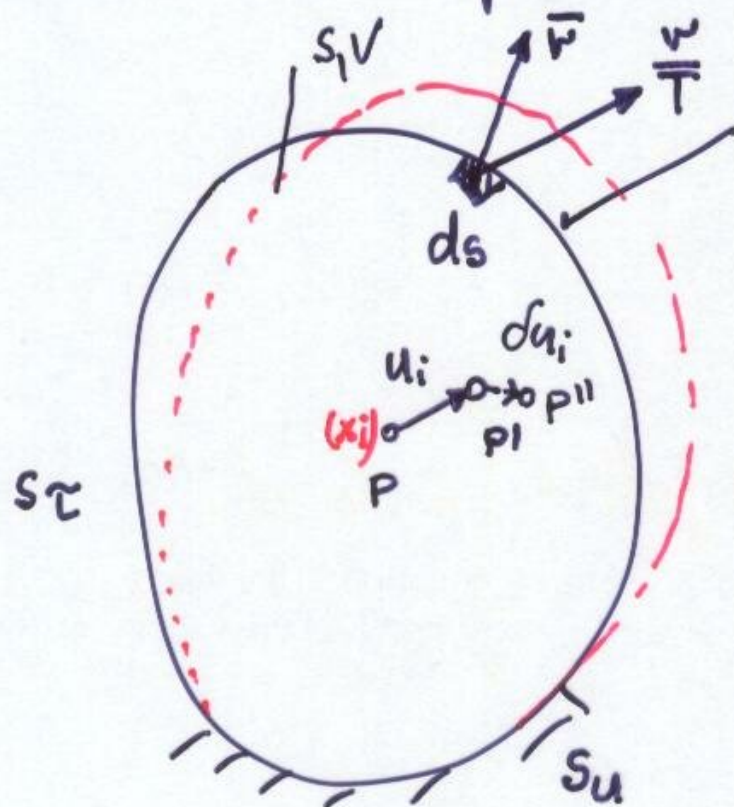 S,V
ν̄
ν
T̿
ds
uᵢ
δuᵢ
(xᵢ)
P
P'
P''
Sτ
Sᵤ